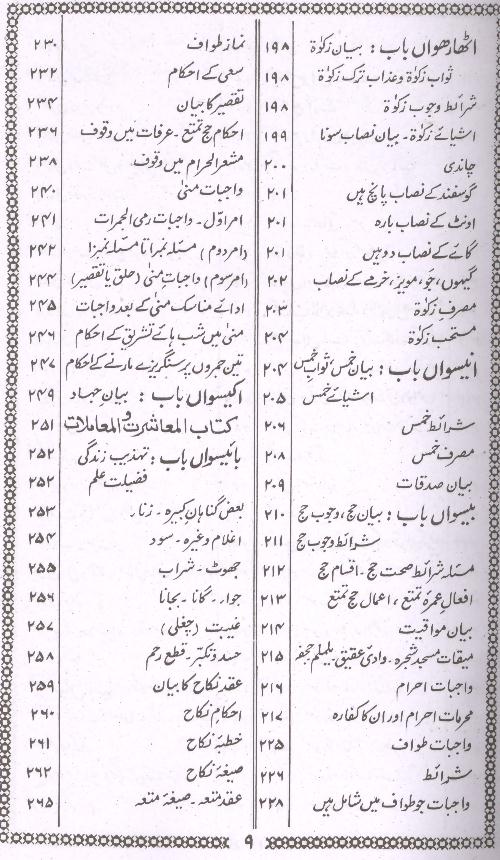 اٹھارھواں باب : بیان زکوٰۃ ۱۹۸
ثواب زکوٰۃ و عذاب ترک زکوٰۃ ۱۹۸
شرائط وجوب زکوٰۃ ۱۹۸
اشیائے زکوٰۃ ۔ بیان نصاب سونا ۱۹۹
چاندی ۲۰۰
گوسفند کے نصاب پانچ ہیں ۲۰۱
اونٹ کے نصاب بارہ ۲۰۱
گائے کے نصاب دو ہیں ۲۰۱
گیہوں، جَو، مویز، خرمے کے نصاب ۲۰۲
مصرف زکوٰۃ ۲۰۲
مستحب زکوٰۃ ۲۰۴
انیسواں باب : بیان خمس ثواب خمس ۲۰۴
اشیائے خمس ۲۰۵
شرائط خمس ۲۰۶
مصرف خمس ۲۰۸
بیان صدقات ۲۰۹
بیسواں باب : بیان حج ، وجوب حج ۲۱۰
شرائط وجوب حج ۲۱۱
مسئلہ شرائط صحت حج ۔ اقسام حج ۲۱۲
افعال عمرہ تمتع ، اعمال حج تمتع ۲۱۳
بیان مواقیت ۲۱۴
میقات مسجد شجرہ ۔ وادی عقیق ۔ یلملم جحفہ ۲۱۵
واجبات احرام ۲۱۶
محرمات احرام اور ان کا کفارہ ۲۱۷
واجبات طواف ۲۲۵
شرائط ۲۲۶
واجبات جو طواف میں شامل ہیں ۲۲۸
نماز طواف ۲۳۰
سعی کے احکام ۲۳۲
تقصیر کا بیان ۲۳۴
احکام حج تمتع ۔ عرفات میں وقوف ۲۳۶
مشعر الحرام میں وقوف ۲۳۸
واجبات منیٰ ۲۴۰
امر اوّل ۔ واجبات رمی الجمرات ۲۴۱
(امر دوم) مسئلہ نمبر ا تا مسئلہ نمبر ۲۴۲
(امر سوم) واجبات منیٰ (حلق یا تقصیر) ۲۴۴
ادائے مناسک منیٰ کے بعد واجبات ۲۴۵
منیٰ میں شب ہائے تشریق کے احکام ۲۴۶
تین جمروں پر سنگریزے مارنے کے احکام ۲۴۷
اکیسواں باب : بیان جہاد ۲۴۹
کتاب المعاشرت و المعاملات ۲۵۱
بائیسواں باب : تہذیب زندگی ۲۵۲
فضیلت علم ۲۵۲
بعض گناہان کبیرہ ۔ زنا۔ ۲۵۳
اغلام وغیرہ ۔ سود ۲۵۴
جھوٹ ۔ شراب ۲۵۵
جوا۔ گانا ۔ بجانا ۲۵۶
غیبت (چغلی) ۲۵۷
حسد و تکبّر ۔ قطع رحم ۲۵۸
عقد نکاح کا بیان ۲۵۹
احکام نکاح ۲۶۰
خطبۂ نکاح ۲۶۱
صیغۂ نکاح ۲۶۲
عقد متعہ ۔ صیغۂ متعہ ۲۶۵
۹